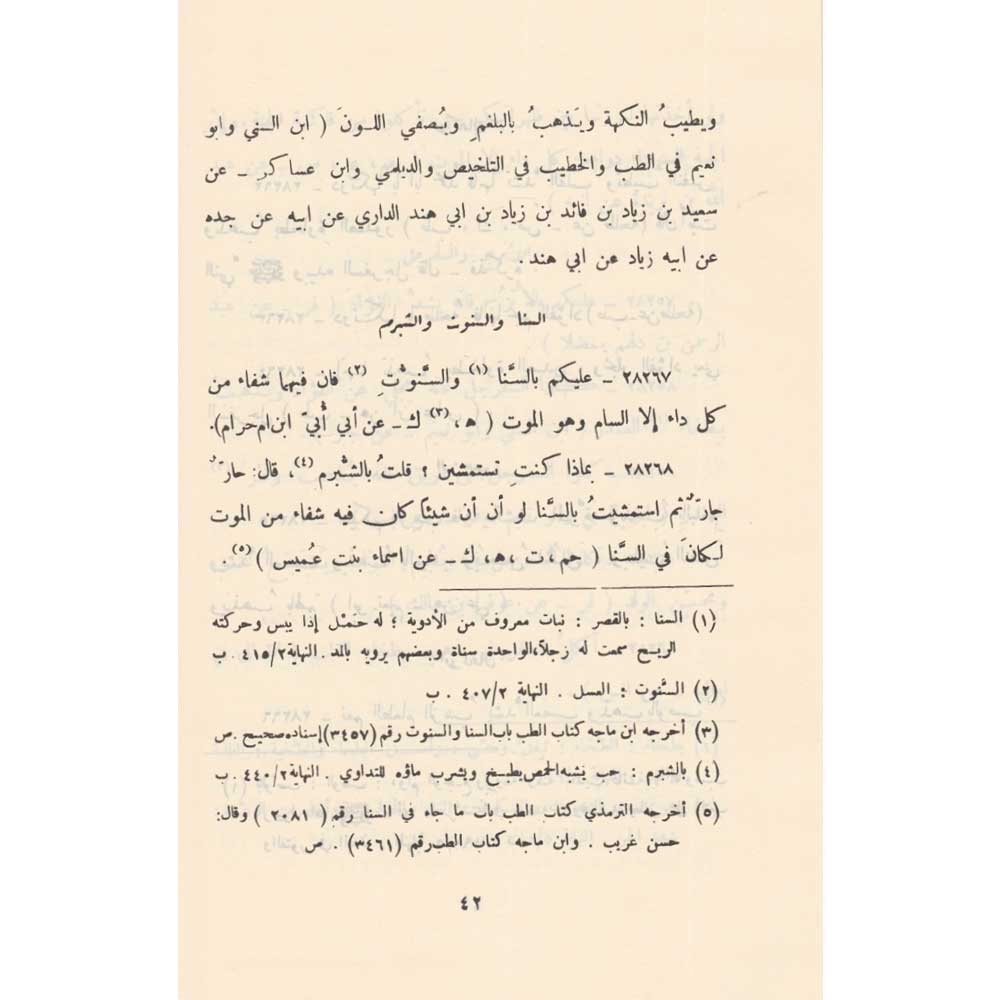 ويطيبُ النكهة ويَذهبُ بالبلغمِ ويُصفي اللونَ ( ابن السني وابو
نعيم في الطب والخطيب في التلخيص والديلمي وابن عساكر - عن
سعيد بن زياد بن فائد بن زياد بن ابي هند الداري عن ابيه عن جده
عن ابيه زياد عن ابي هند .
السنا والسنوت والشبرم
٢٨٢٦٧ - عليكم بالسَّنا (١) والسَّنوْتِ (٢) فان فيهما شفاء من
كل داء إلا السام وهو الموت ( ه، (٣) ك - عن أبي أُبيّ ابن ام حرام).
٢٨٢٦٨ - بماذا كنتِ تستمشين ؟ قلتُ بالشبْرم (٤)، قال: حارّ ٌ
جارّ ٌ ثم استمشيتُ بالسَّنا لو أن أن شيئًا كان فيه شفاء من الموت
لكانَ في السَّنا ( حم ، ت ، ه، ك - عن اسماء بنت عُميس ) (٥) .
(١) السنا : بالقصر : نبات معروف من الأدوية ؛ له حَمْل إذا يبس وحركته
الريح سمعت له زجلاً، الواحدة سناة وبعضهم يرويه بالمد . النهاية ٤١٥/٢ . ب
(٢) السنوت : العسل . النهاية ٤٠٧/٢ . ب
(٣) أخرجه ابن ماجه كتاب الطب باب السنا والسنوت رقم (٣٤٥٧) إسناده صحيح . ص
(٤) بالشبرم : حب يشبه الحمص يطبخ ويشرب ماؤه للتداوي . النهاية ٤٤٠/٢ . ب
(٥) أخرجه الترمذي كتاب الطب باب ما جاء في السنا رقم ( ٢٠٨١ ) وقال:
حسن غريب . وابن ماجه كتاب الطب رقم (٣٤٦١) . ص
٤٢